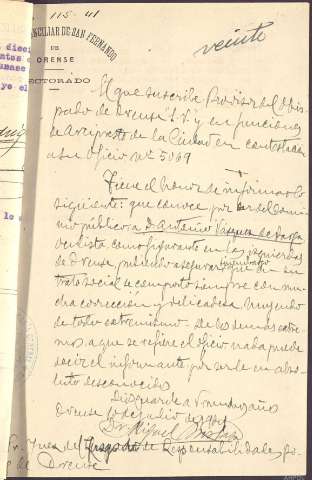 115-41
CONCILIAR DE SAN FERNANDO
DE
ORENSE
RECTORADO
veinte
El que suscribe Provisor del Obis-
pado de Orense S.V. y en funciones
de Arcipreste de la Ciudad en contestación
a su oficio Nº 5069
Tiene el honor de informar lo
siguiente: que conoce por ser del domi-
nio público a D. Antonio
dentista como figurante en las izquierdas
de Orense, pudiendo asegurar que en su
trato social se comportó siempre con mu-
cha corrección y delicadeza huyendo
de todo extremismo. De los demás extre-
mos a que se refiere el oficio nada puede
decir el informante por serle en abso-
luto desconocidos
Dios guarde a V. muchos años
Orense 10 de julio de
Dr. Miguel
Sr. Juez del Juzgado de Responsabilidades
de Orense